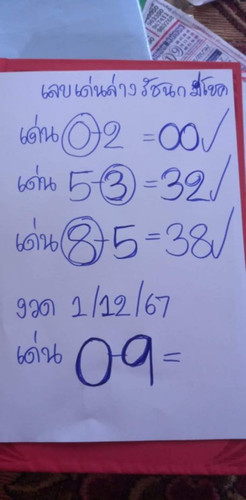 เลขเด่นล่าง รัชนก มีโชค
เด่น 0-2 = 00✓
เด่น 5-3 = 32✓
เด่น 8-5 = 38✓
งวด 1/12/67
เด่น 0-9 =